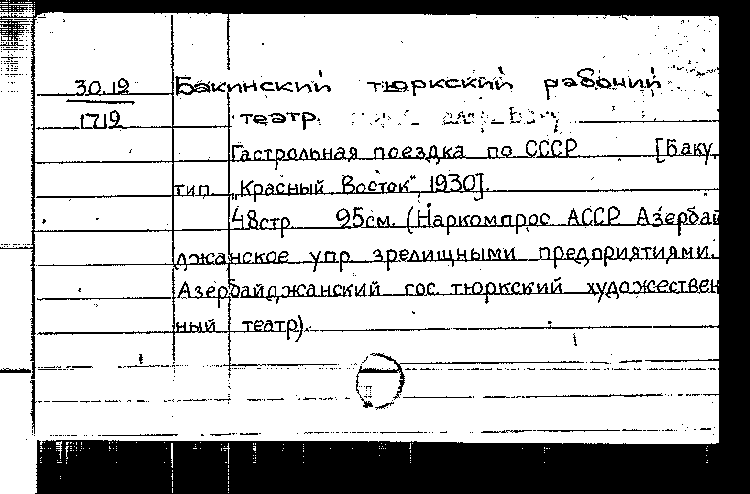 30.12
1712
Бакинский тюркский рабочий
театр.
Гастрольная поездка по СССР [Баку,
тип. „Красный Восток", 1930].
48стр 25см. (Наркомпрос АССР Азербай
джанское упр зрелищными предприятиями.
Азербайджанский гос. тюркский художествен
ный театр).